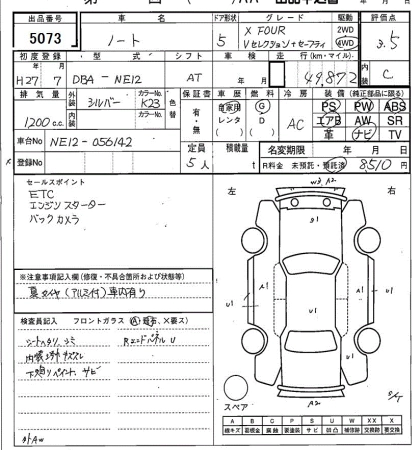 出品番号 車名 ドア形状 グレード 駆動 評価点
5073 ノート 5 X FOUR Vセレクション+セーフティ 2WD 4WD 3.5
初度登録 型式 シフト 車検 走行(km・マイル) 内装
H27年 7月 DBA-NE12 AT 年 月 49,872 C
排気量 外装 カラーNo. 内装 カラーNo. 色替 保証書 車歴 燃料 冷房 装備(純正部品に限る)
1,200 c.c. シルバー K23 有・無 自家用 レンタ G D AC PS PW ABS
エアB AW SR
革 ナビ TV
車台No NE12-056142 定員 積載量 名変期限 年 月 日
登録No 5人 t R料金 未預託・預託済 8510円
セールスポイント
ETC
エンジンスターター
バックカメラ
左 右
※注意事項記入欄(修復・不具合箇所および状態等)
夏タイヤ(アルミ付)車内有り
検査員記入 フロントガラス
シートヘタリ、シミ Rエンドパネル U
内張
下廻りペイント、サビ
外AW
W3 A2
g1
U1
U1
U1
A2
スペア
A B C P S U W X XX
線キズ 腐蝕 要塗装 サビ 凹凸 補修跡 交換跡 要交換